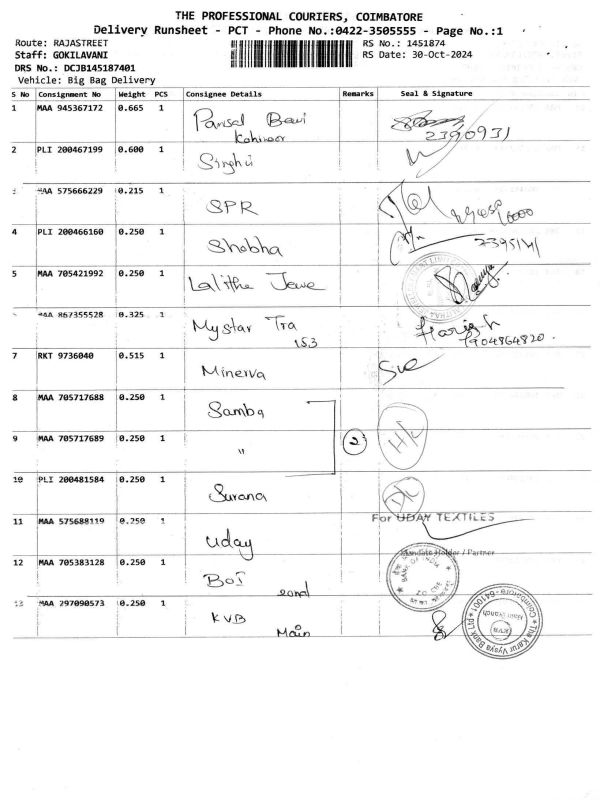 THE PROFESSIONAL COURIERS, COIMBATORE
Delivery Runsheet - PCT - Phone No.:0422-3505555 - Page No.:1
Route: RAJASTREET RS No.: 1451874
Staff: GOKILAVANI RS Date: 30-Oct-2024
DRS No.: DCJB145187401
Vehicle: Big Bag Delivery
S No Consignment No Weight PCS Consignee Details Remarks Seal & Signature
1 MAA 945367172 0.665 1
Kohinoor 2390931
2 PLI 200467199 0.600 1 Singhvi
3 MAA 575666229 0.215 1 SPR
4 PLI 200466160 0.250 1 Shobha
5 MAA 705421992 0.250 1 Lalitha Jewe
6 MAA 867355528 0.325 1 Mystar Tra Harish
153 7904864820
7 RKT 9736040 0.515 1 Minerva
8 MAA 705717688 0.250 1 Samba
9 MAA 705717689 0.250 1 " 2 H/C
10 PLI 200481584 0.250 1 Surana
11 MAA 575688119 0.250 1 Uday For UDAY TEXTILES
Mandate Holder / Partner
12 MAA 705383128 0.250 1 BOI BANK OF INDIA
13 MAA 297090573 0.250 1 KVB
Main
The Karur Vysya Bank Ltd
Coimbatore-641001
Main Branch
KVB